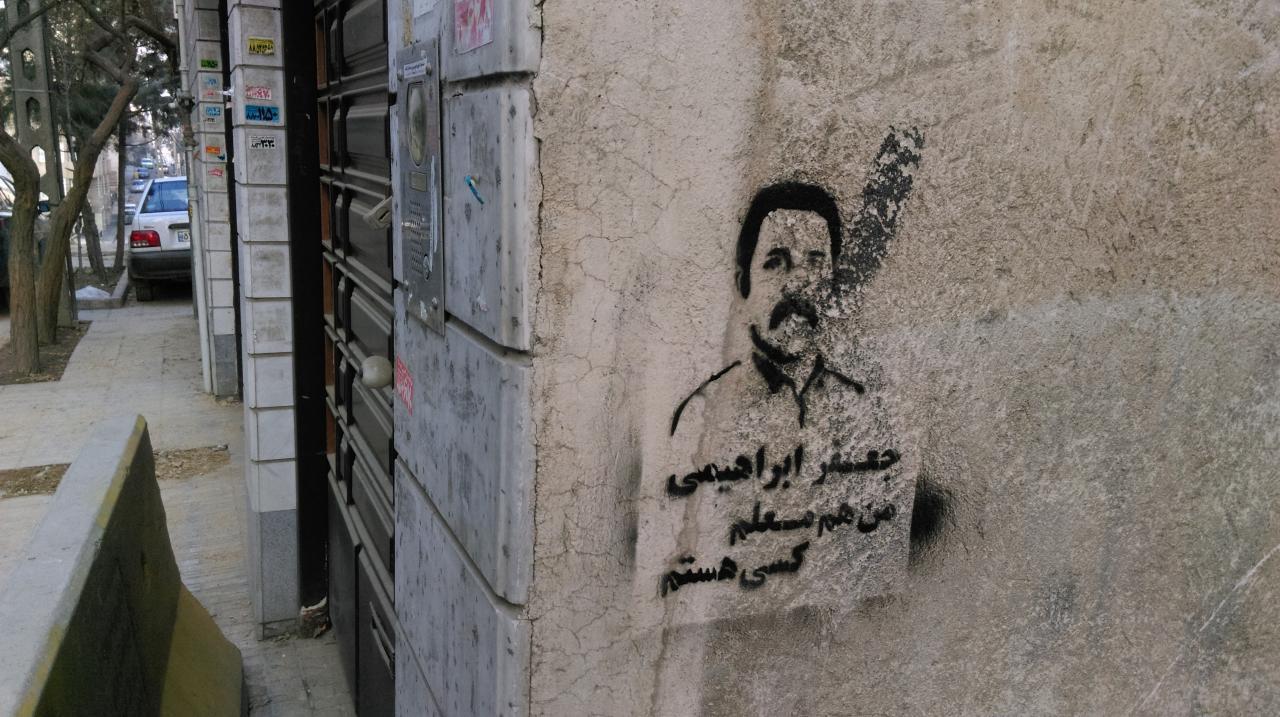 جعفر ابراهیمی
من هم معلم
کسی هستم